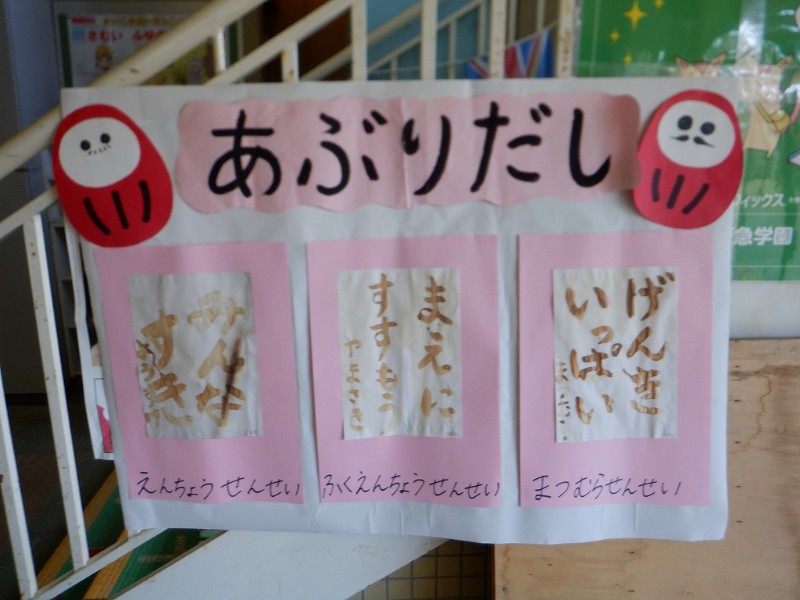 さむい ふゆ
あぶりだし
ィックス
急学園
みんな
すき
まえに
すすもう
やまさき
げんき
いっぱい
えんちょうせんせい
ふくえんちょうせんせい
まつむらせんせい